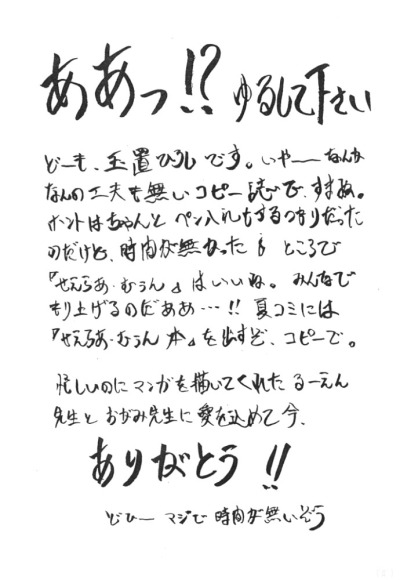 ああっ!? ゆるして下さい
どーも、玉置ひろしです。いやーなんか
なんの工夫も無いコピー誌で、すまぬ。
ホントはちゃんとペン入れもするつもりだった
のだけど、時間が無かった ところで
『せえらあ・むうん』はいいね。みんなで
もり上げるのだああ…!! 夏コミには
『せえらあ・むうん 本』を出すぞ、コピーで。
忙しいのにマンガを描いてくれた るーえん
先生と おがみ先生に愛を込めて今、
ありがとう!!
どひー マジで時間が無いぞう